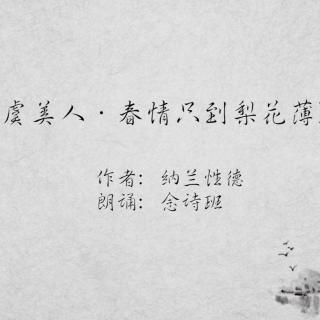 虞美人·春情只到梨花薄
作者：纳兰性德
朗诵：念诗班